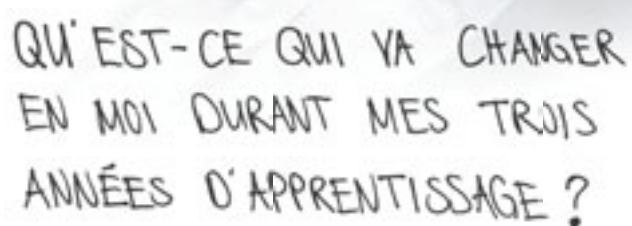 QU'EST-CE QUI VA CHANGER
EN MOI DURANT MES TROIS
ANNÉES D'APPRENTISSAGE ?